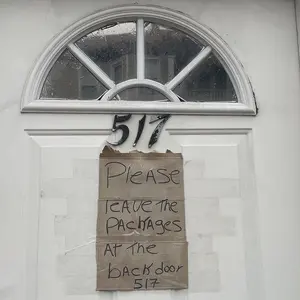 517
PLEASE
leave the
packages
At the
back door
517